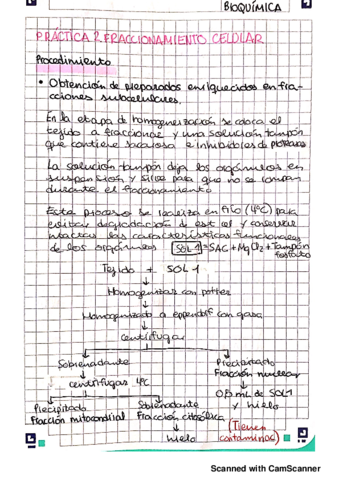 BIOQUÍMICA
PRÁCTICA 2. FRACCIONAMIENTO CELULAR
Procedimiento
• Obtención de preparados enriquecidos en fra-
cciones subcelulares.
En la etapa de homogeneización se coloca el
tejido a fraccionar y una solución tampón
que contiene sacarosa e inhibidores de proteasas
La solución tampón deja los orgánulos en
suspensión y sirve para que no se rompan
durante el fraccionamiento
Este proceso se realiza en frío (4ºC) para
evitar degradación de est cel y conservar
intactas las características funcionales
de los orgánulos SOL 1 = SAC + MgCl2 + Tampón
fosfato
Tejido + SOL 1
Homogenizar con potter
Homogenizado a eppendif con gasa
Centrifugar
Sobrenadante
Precipitado
Fracción nuclear
centrifugar 4ºC
0,5 mL de SOL 1
y hielo
Precipitado
Fracción mitocondrial
Sobrenadante
Fracción citosólica
(Tienen
contaminac)
hielo
Scanned with CamScanner